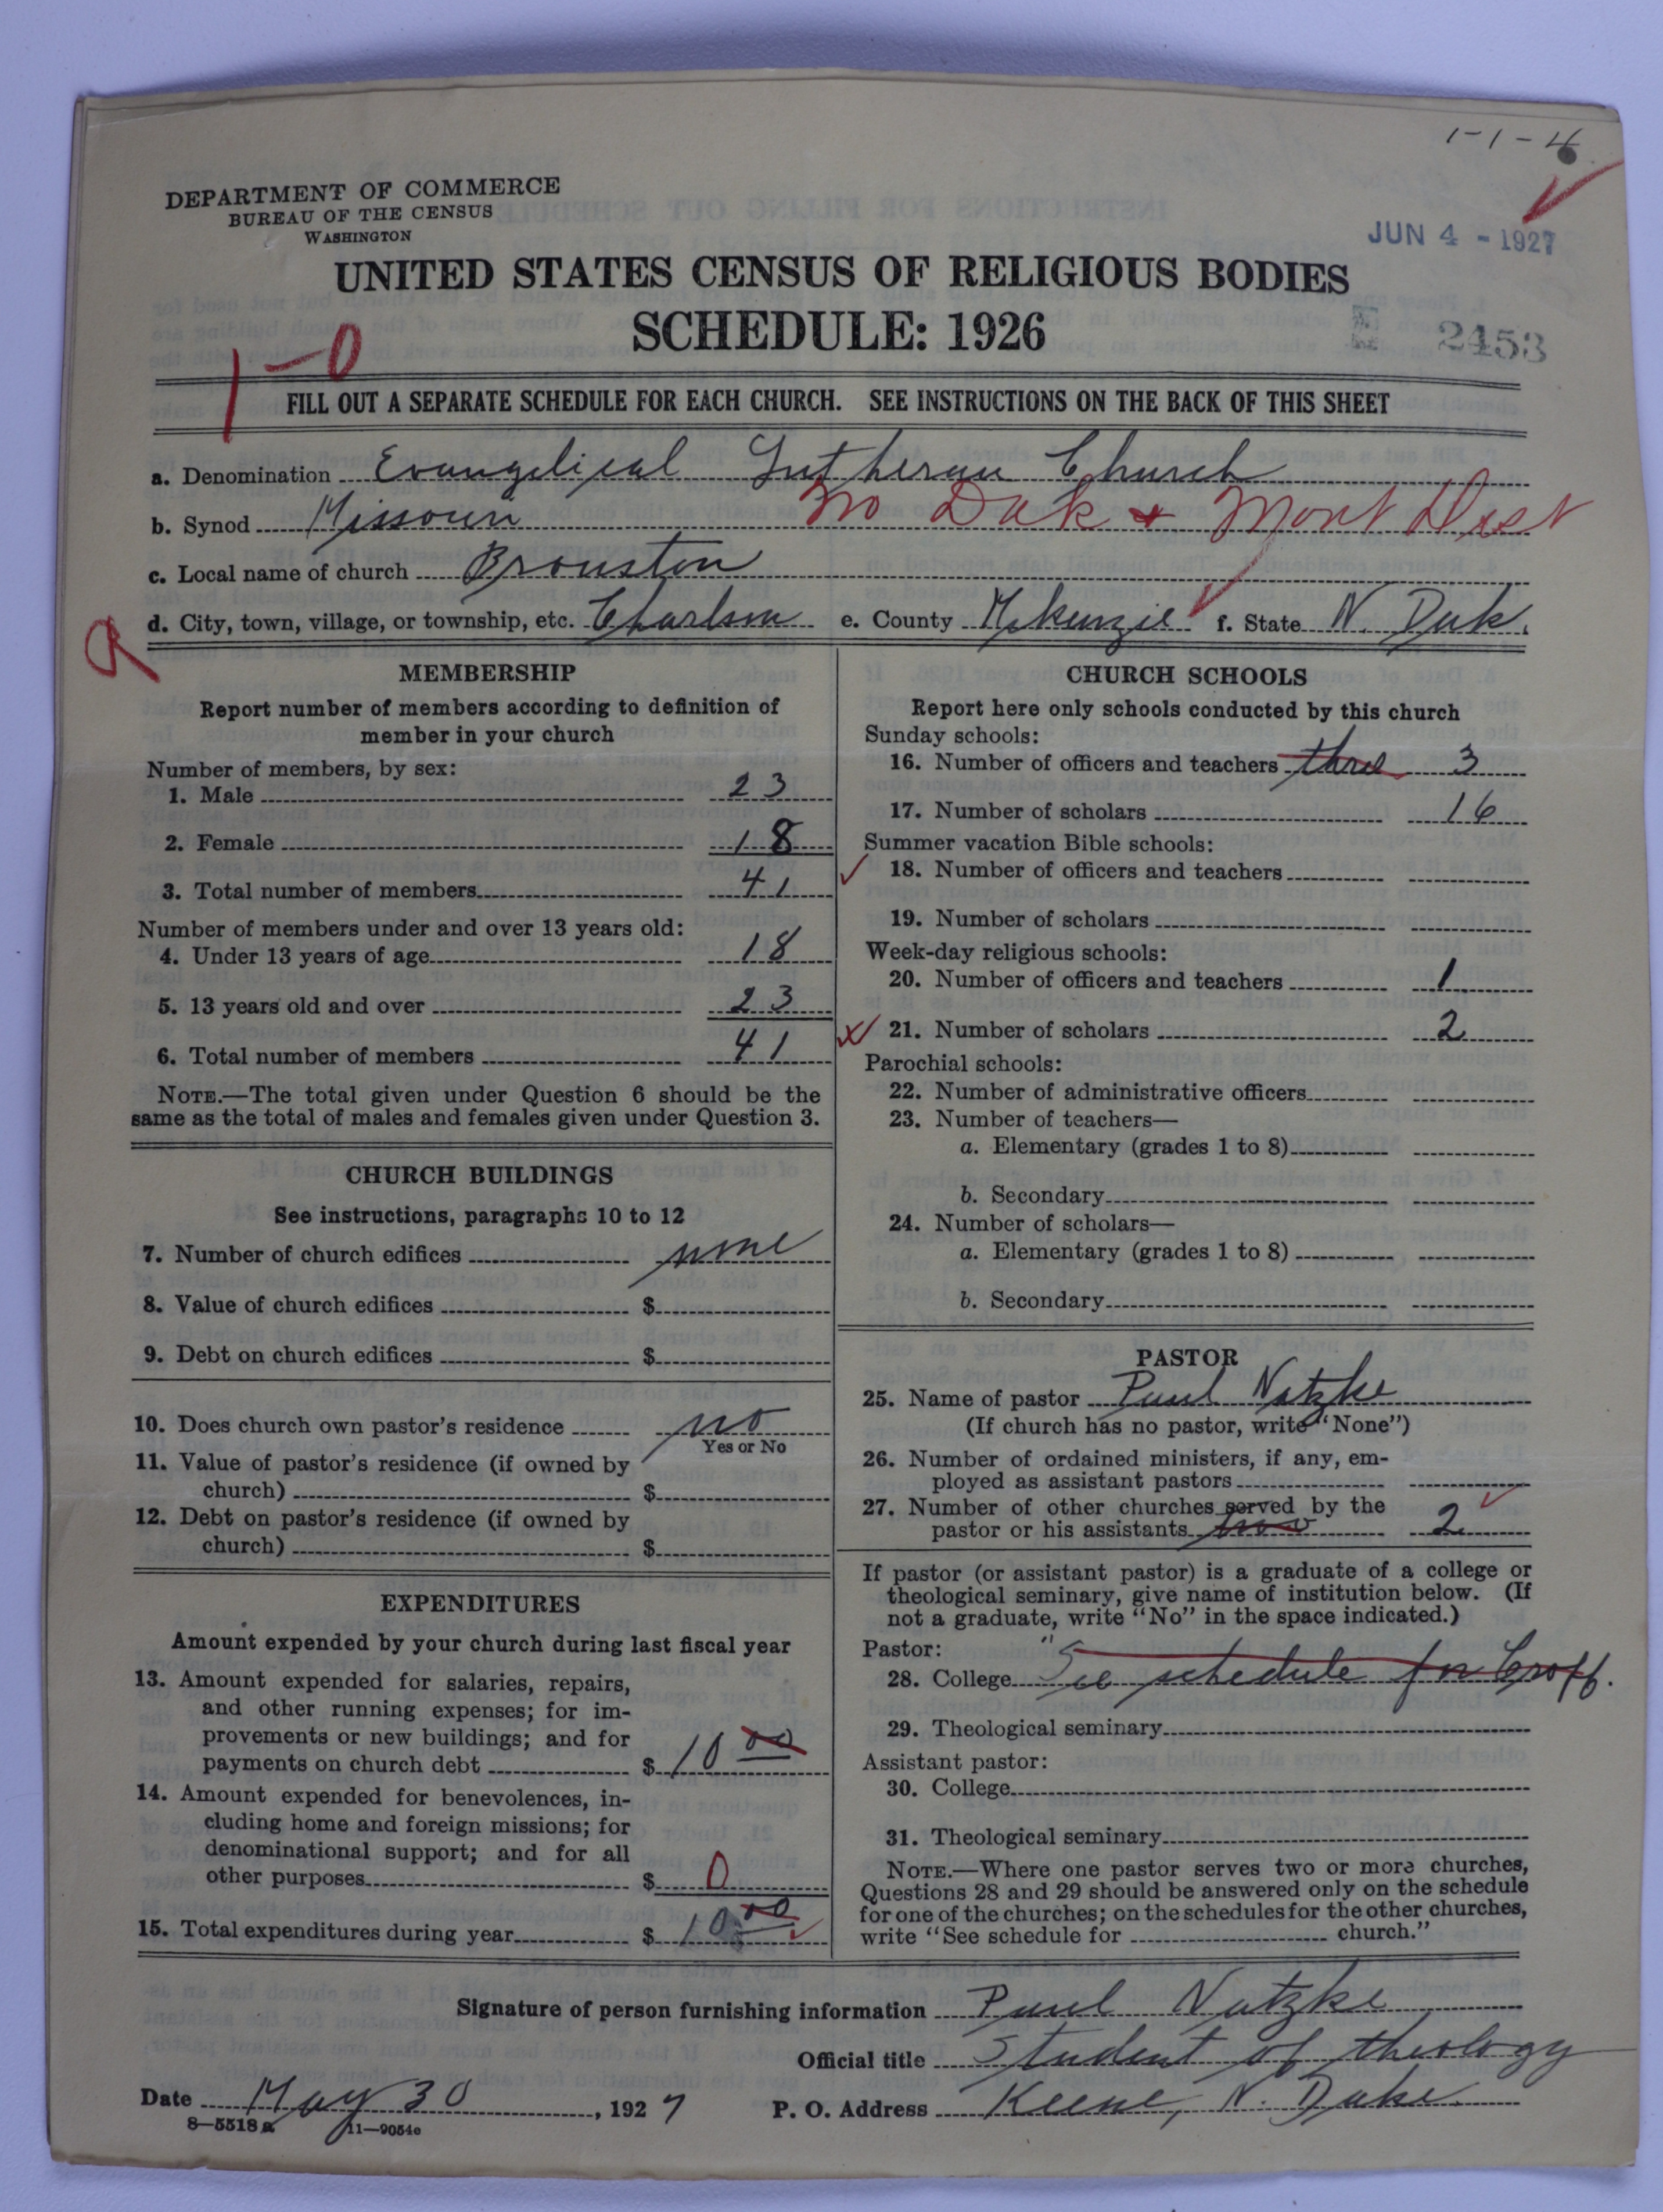 1-1-4
DEPARTMENT OF COMMERCE
BUREAU OF THE CENSUS
WASHINGTON
JUN 4 - 1927
UNITED STATES CENSUS OF RELIGIOUS BODIES
SCHEDULE: 1926
2453
1-0
FILL OUT A SEPARATE SCHEDULE FOR EACH CHURCH. SEE INSTRUCTIONS ON THE BACK OF THIS SHEET
a. Denomination Evangelical Lutheran Church
b. Synod Missouri No Dak & Mont Dist
c. Local name of church Brouston
d. City, town, village, or township, etc. Charlson e. County McKenzie f. State N. Dak.
MEMBERSHIP
Report number of members according to definition of
member in your church
Number of members, by sex:
1. Male 23
2. Female 18
3. Total number of members 41
Number of members under and over 13 years old:
4. Under 13 years of age 18
5. 13 years old and over 23
6. Total number of members 41
NOTE.—The total given under Question 6 should be the
same as the total of males and females given under Question 3.
CHURCH BUILDINGS
See instructions, paragraphs 10 to 12
7. Number of church edifices none
8. Value of church edifices $
9. Debt on church edifices $
10. Does church own pastor's residence no
Yes or No
11. Value of pastor's residence (if owned by
church) $
12. Debt on pastor's residence (if owned by
church) $
EXPENDITURES
Amount expended by your church during last fiscal year
13. Amount expended for salaries, repairs,
and other running expenses; for im-
provements or new buildings; and for
payments on church debt $ 10 00
14. Amount expended for benevolences, in-
cluding home and foreign missions; for
denominational support; and for all
other purposes $ 0
15. Total expenditures during year $ 10 00
CHURCH SCHOOLS
Report here only schools conducted by this church
Sunday schools:
16. Number of officers and teachers three 3
17. Number of scholars 16
Summer vacation Bible schools:
18. Number of officers and teachers
19. Number of scholars
Week-day religious schools:
20. Number of officers and teachers 1
21. Number of scholars 2
Parochial schools:
22. Number of administrative officers
23. Number of teachers—
a. Elementary (grades 1 to 8)
b. Secondary
24. Number of scholars—
a. Elementary (grades 1 to 8)
b. Secondary
PASTOR
25. Name of pastor Paul Natzke
(If church has no pastor, write "None")
26. Number of ordained ministers, if any, em-
ployed as assistant pastors
27. Number of other churches served by the
pastor or his assistants two 2
If pastor (or assistant pastor) is a graduate of a college or
theological seminary, give name of institution below. (If
not a graduate, write "No" in the space indicated.)
Pastor:
28. College "See schedule for Croff.
29. Theological seminary
Assistant pastor:
30. College
31. Theological seminary
NOTE.—Where one pastor serves two or more churches,
Questions 28 and 29 should be answered only on the schedule
for one of the churches; on the schedules for the other churches,
write "See schedule for church."
Signature of person furnishing information Paul Natzke
Official title Student of theology
Date May 30, 1927 P. O. Address Keene, N. Dak.
8—5518a 11—9054e